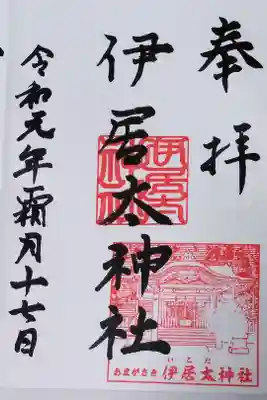 奉拝
伊居太神社
令和元年霜月十七日
いこた
あまがさき 伊居太神社